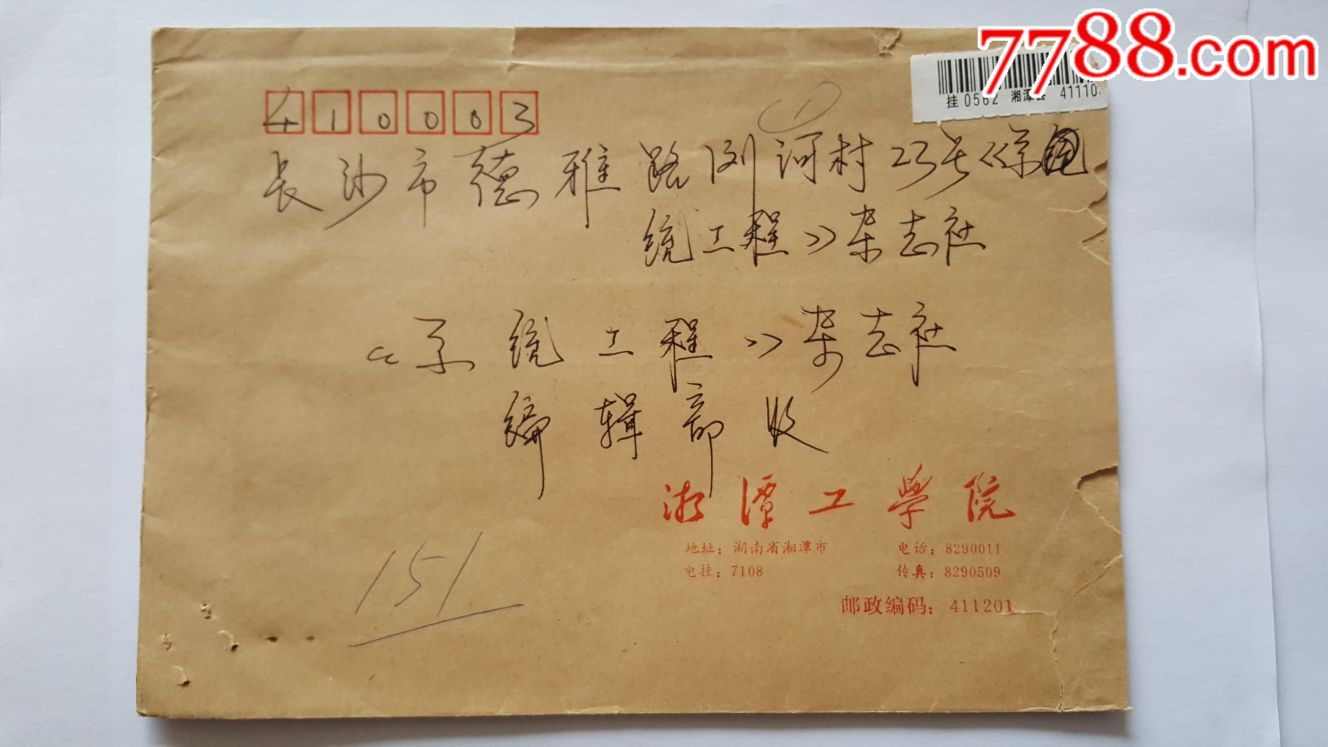 7788.com
挂 0562 湘潭县 41110
①
410003
长沙市德雅路浏河村23号《系
统工程》杂志社
《系统工程》杂志社
编辑部收
湘潭工学院
地址：湖南省湘潭市 电话：8290011
电挂：7108 传真：8290509
邮政编码：411201
151